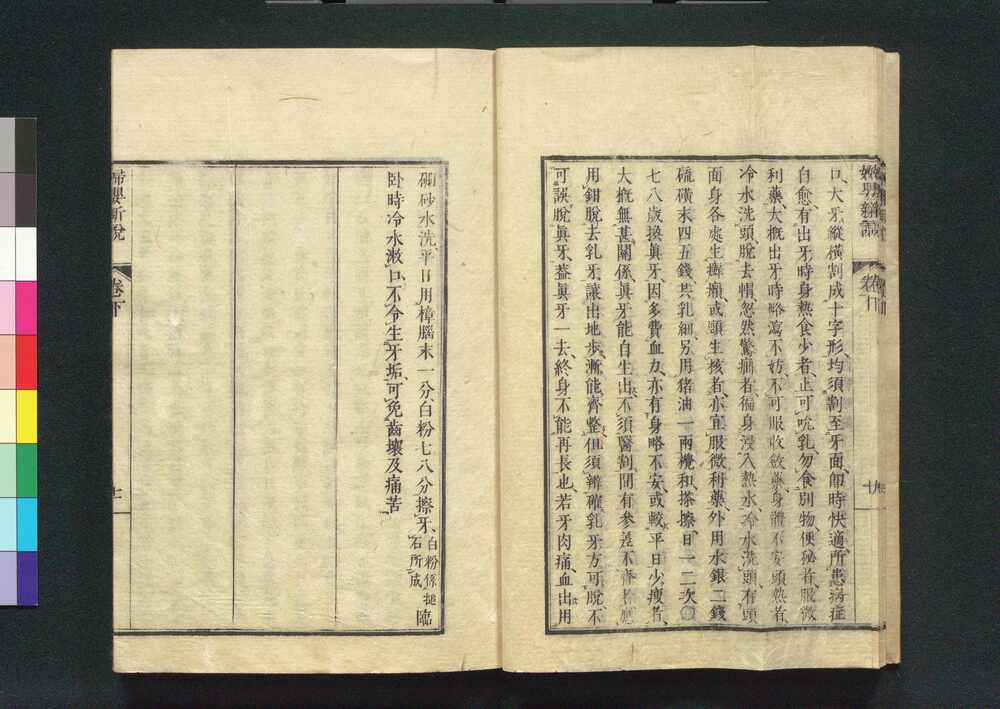 口、大牙縱橫割成十字形、均須割至牙面、卽時快適、所患病症
自愈、有出牙時身熱食少者、止可吮乳、勿食別物、便秘者、服微
利藥、大槪出牙時略瀉不妨、不可服收斂藥、身體不安頭熱者、
冷水洗頭、脫去帽、忽然驚癎者、徧身浸入熱水、冷水洗頭、有頭
面身各處生癬癩、或頸生核者、亦宜服微利藥、外用水銀二錢
硫磺末四五錢、共乳細、另用猪油一兩攪和、搽擦日一二次〇
七八歲換眞牙、因多費血力、亦有身略不安、或較平日少瘦者、
大槪無甚關係、眞牙能自生出、不須醫割、間有參差不齊者、應
用鉗脫去乳牙、讓出地步、漸能齊整、但須辨確乳牙方可脫、不
可誤脫眞牙、蓋眞牙一去、終身不能再長也、若牙肉痛、血出、用
硼砂水洗、平日用樟腦末一分、白粉七八分擦牙、白粉係搥石所成 臨
卧時冷水漱口、不令生牙垢、可免齒壞及痛苦
婦嬰新說
卷下